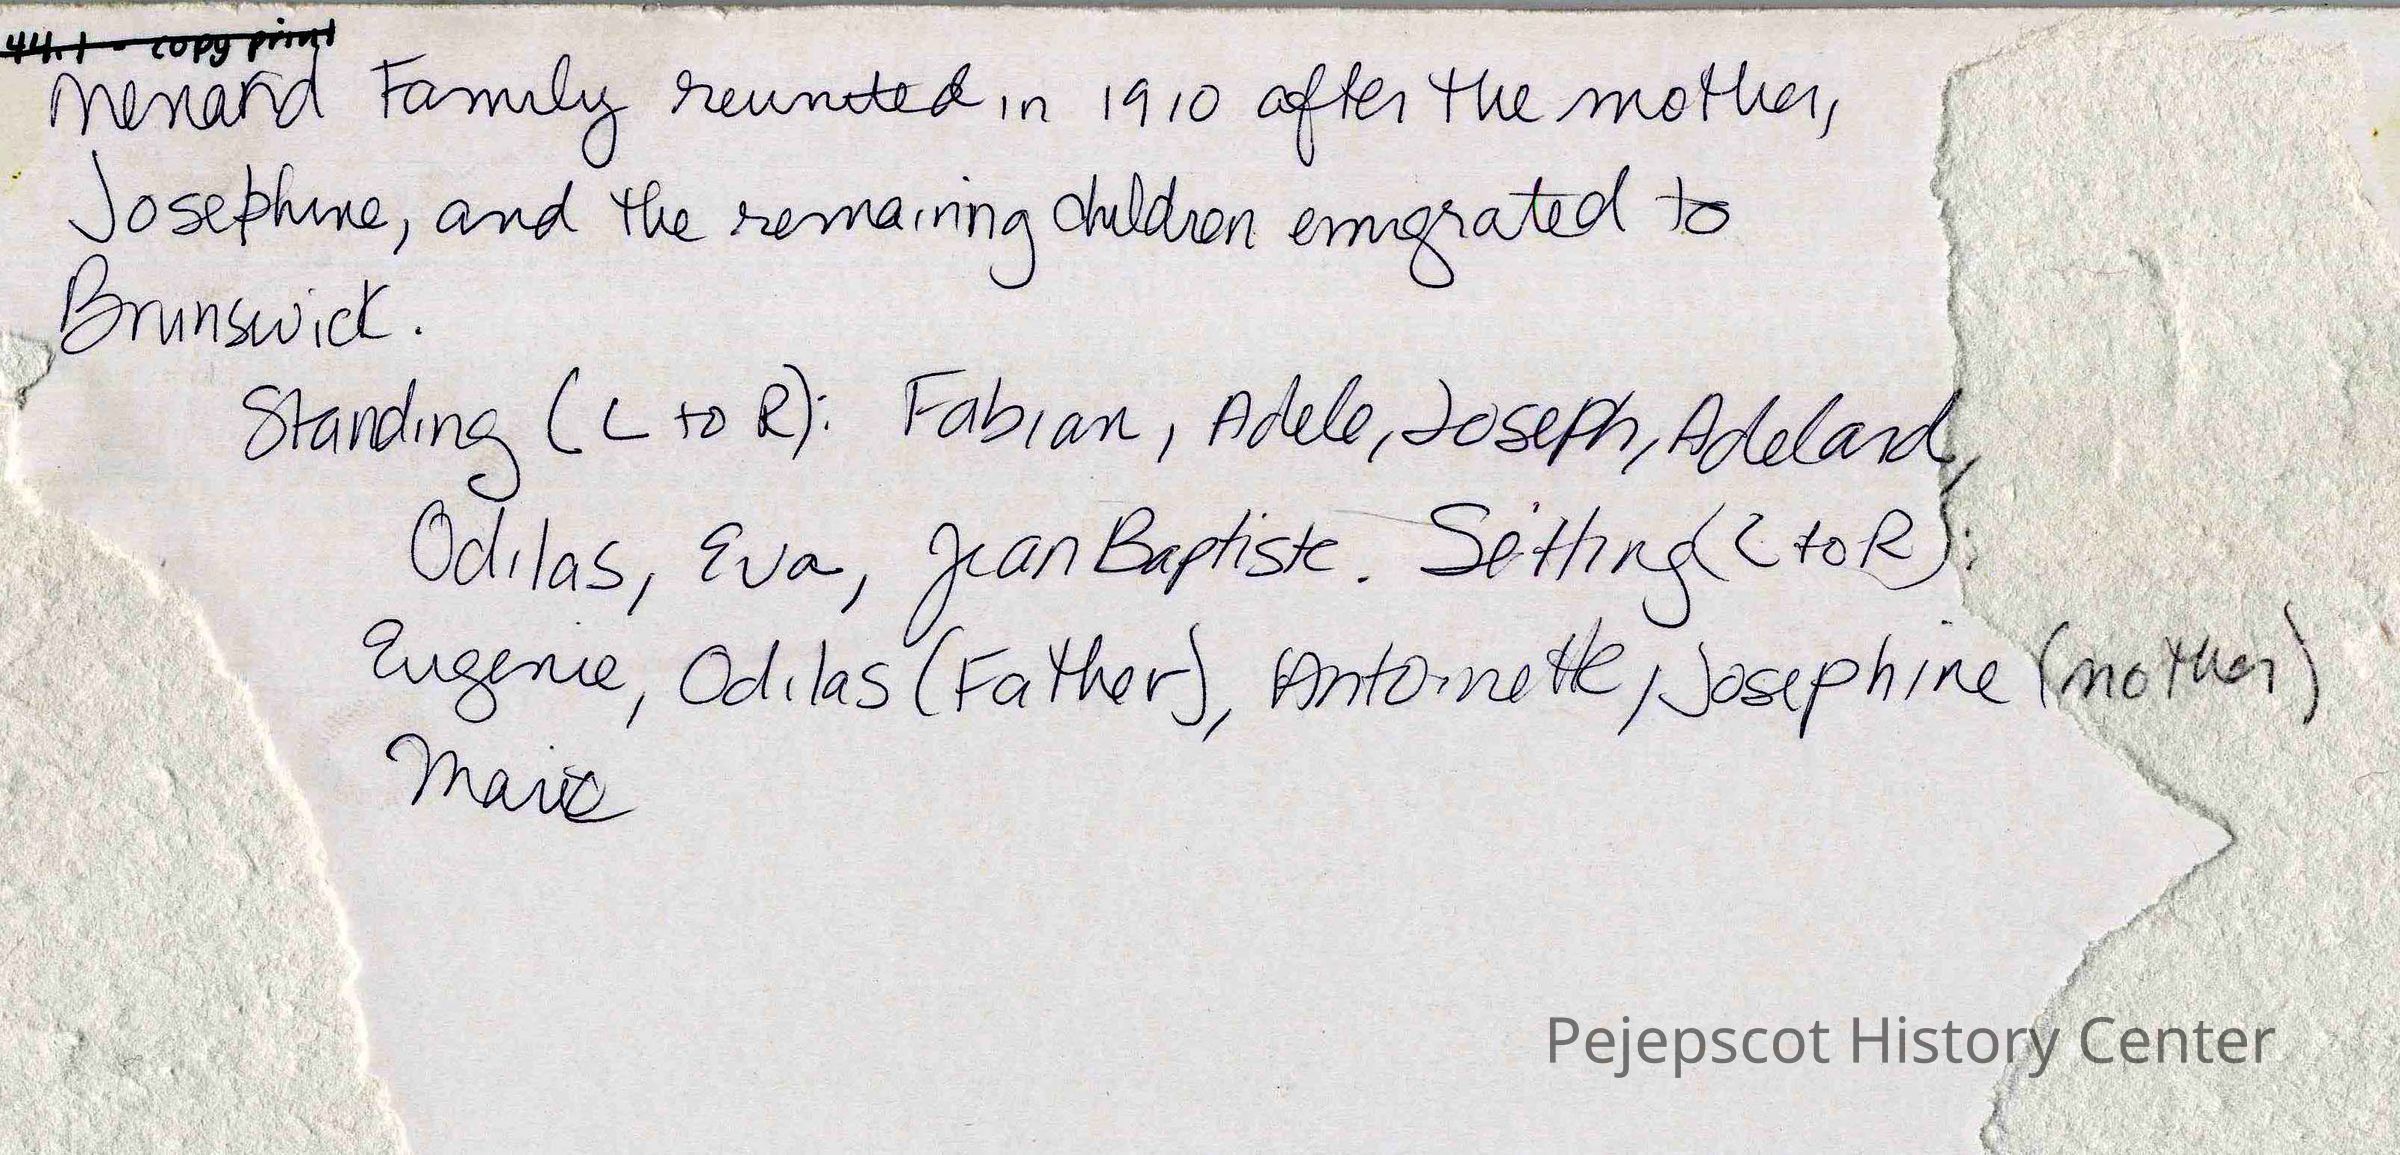 44.1 - copy print
Menard Family reunited in 1910 after the mother,
Josephine, and the remaining children emigrated to
Brunswick.
Standing (L to R): Fabian, Adele, Joseph, Adelard,
Odilas, Eva, Jean Baptiste. Sitting (L to R):
Eugenie, Odilas (Father), Antoinette, Josephine (mother)
Marie
Pejepscot History Center